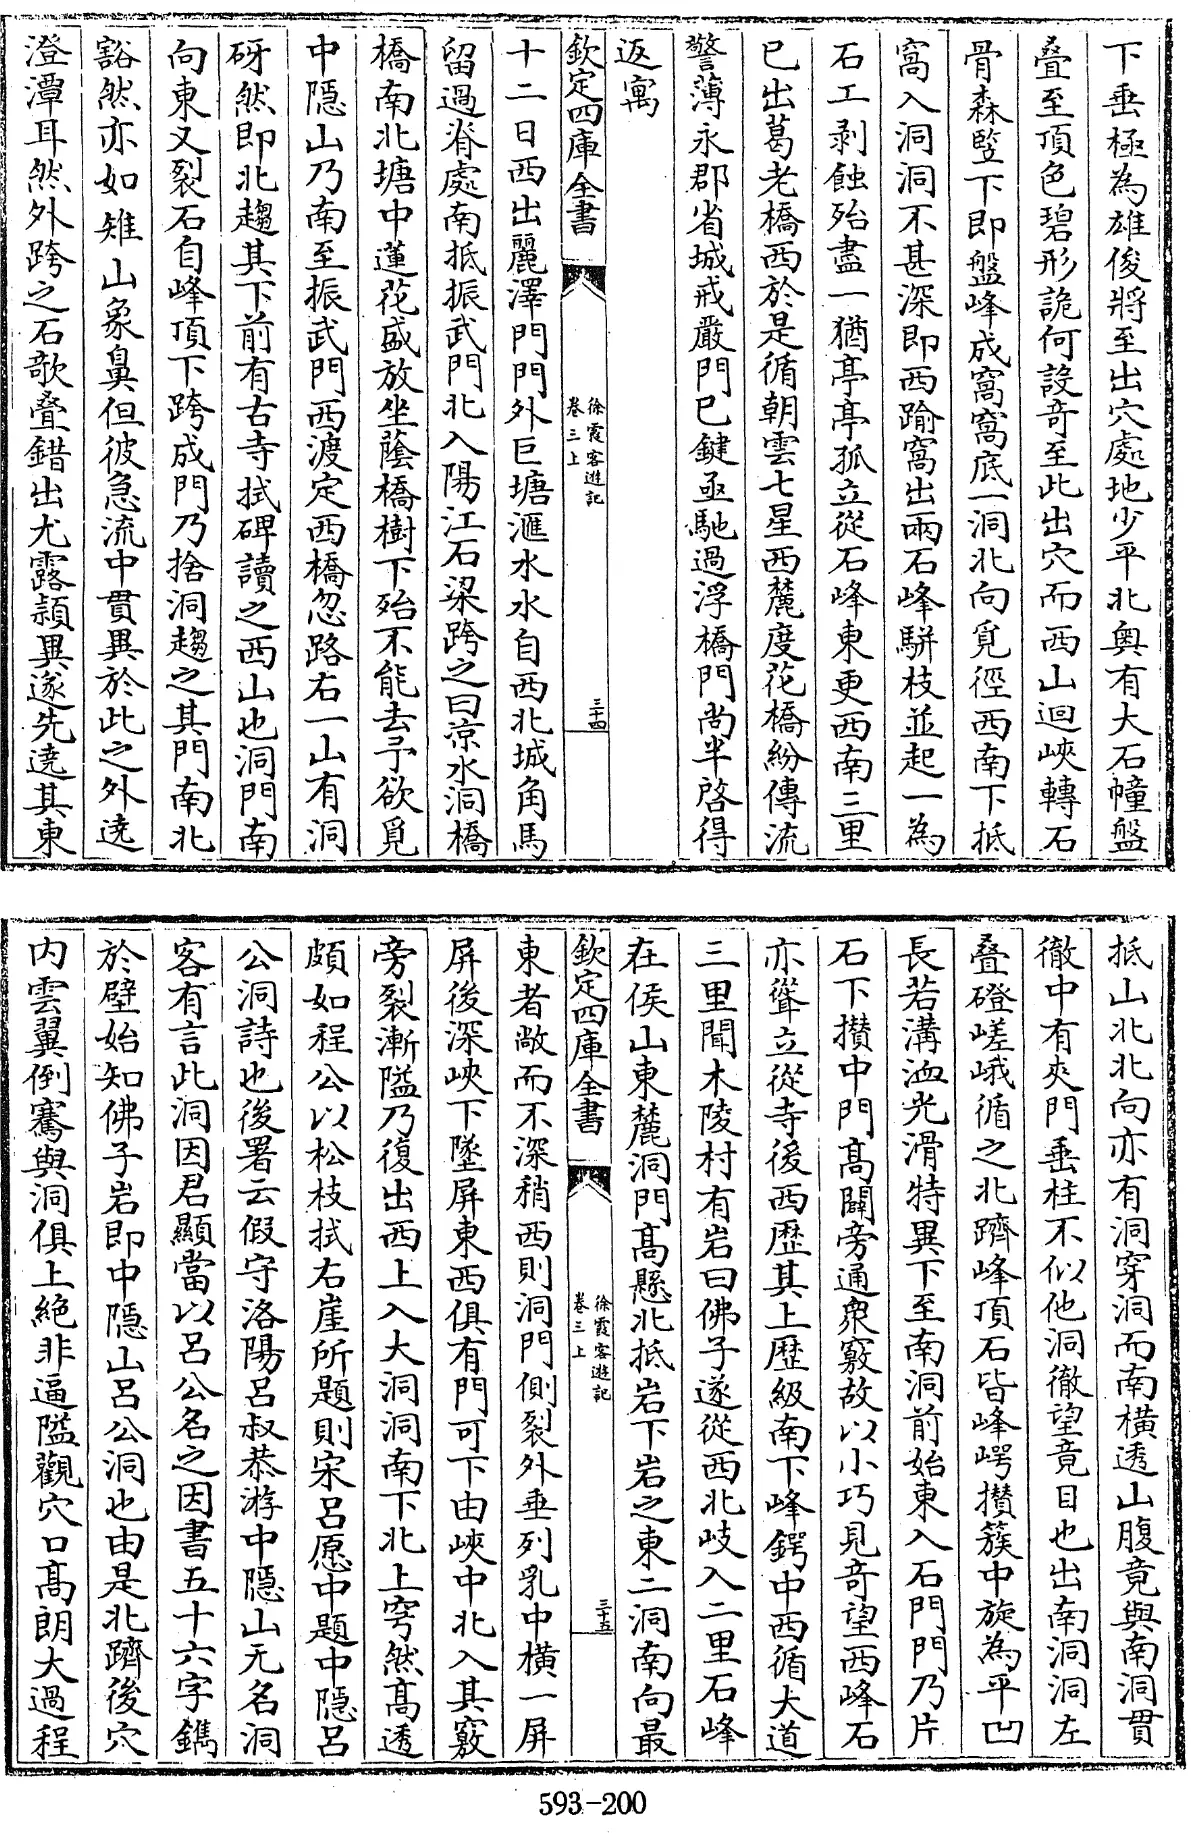 下垂極為雄俊將至出穴處地少平北奥有大石幢盤
叠至頂色碧形詭何設竒至此出穴而西山迴峽轉石
骨森竪下即盤峰成窩窩底一洞北向覓徑西南下抵
窩入洞洞不甚深即西踰窩出兩石峰駢枝並起一為
石工剥蝕殆盡一猶亭亭孤立從石峰東更西南三里
已出葛老橋西於是循朝雲七星西麓度花橋紛傳流
警薄永郡省城戒嚴門已鍵亟馳過浮橋門尚半啓得
返寓
欽定四庫全書
徐霞客遊記
卷三上
三十四
十二日西出麗澤門門外巨塘滙水水自西北城角馬
留過脊處南抵振武門北入陽江石梁跨之曰凉水洞橋
橋南北塘中蓮花盛放坐蔭橋樹下殆不能去予欲覓
中隱山乃南至振武門西渡定西橋忽路右一山有洞
砑然即北趨其下前有古寺拭碑讀之西山也洞門南
向東又裂石自峰頂下跨成門乃捨洞趨之其門南北
豁然亦如雉山象鼻但彼急流中貫異於此之外遶
澄潭耳然外跨之石欹叠錯出尤露頴異遂先遶其東
抵山北北向亦有洞穿洞而南横透山腹竟與南洞貫
徹中有夾門垂柱不似他洞徹望竟目也出南洞洞左
叠磴嵯峨循之北躋峰頂石皆峰崿攅簇中旋為平凹
長若溝洫光滑特異下至南洞前始東入石門門乃片
石下攅中門高闢旁通衆竅故以小巧見竒望西峰石
亦聳立從寺後西歷其上歴級南下峰鍔中西循大道
三里聞木陵村有岩曰佛子遂從西北岐入二里石峰
在侯山東麓洞門高懸北抵岩下岩之東二洞南向最
欽定四庫全書
徐霞客遊記
卷三上
三十五
東者敞而不深稍西則洞門側裂外垂列乳中横一屏
屏後深峽下墜屏東西俱有門可下由峽中北入其竅
旁裂漸隘乃復出西上入大洞洞南下北上穹然高透
頗如程公以松枝拭右崖所題則宋呂愿中題中隱呂
公洞詩也後署云假守洛陽呂叔恭游中隱山无名洞
客有言此洞因君顯當以呂公名之因書五十六字鐫
於壁始知佛子岩即中隱山呂公洞也由是北躋後穴
内雲翼倒騫與洞俱上絶非逼隘觀穴口高朗大過程
593-200